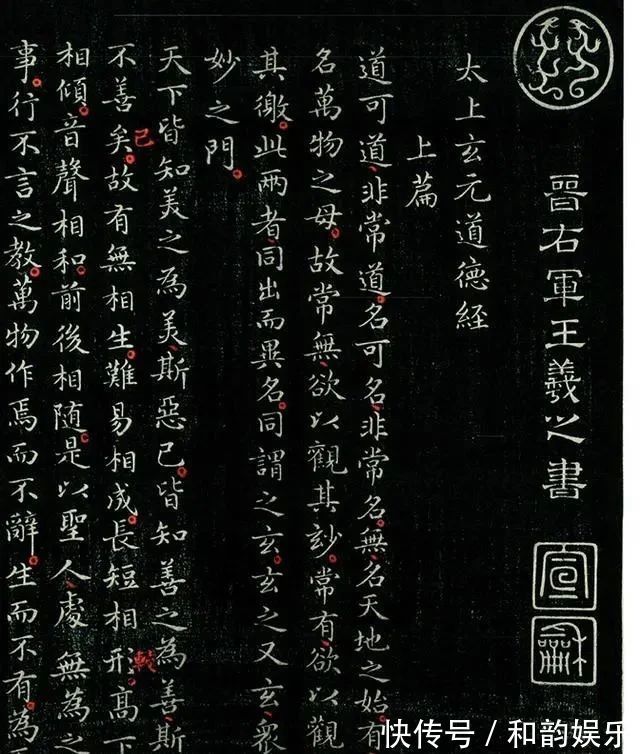 晉右軍王羲之書
宣
龢
太上玄元道德經
上篇
道可道、非常道。名可名、非常名。無、名天地之始。有
名萬物之母。故常無、欲以觀其玅。常有、欲以觀
其徼。此兩者、同出而異名。同謂之玄。玄之又玄、衆
妙之門。
天下皆知美之為美、斯惡已。皆知善之為善、斯
不善矣。故有無相生。難易相成。長短相形。高下
已
較
相傾。音聲相和。前後相随。是以聖人、處無為之
事。行不言之教。萬物作焉而不辭。生而不有。為
快传号 / 和韵娱乐